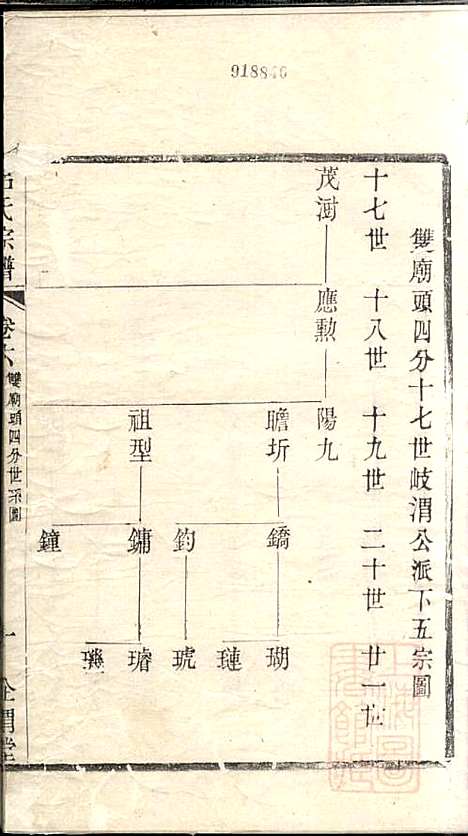 918840
雙廟頭四分十七世岐渭公派下五宗圖
十七世 十八世 十九世 二十世 廿一世
茂澍 應勲 陽九
瞻圻 鐈 瑚
璉
釣 琥
祖型 鏞 璿
璣
鐘
氏宗譜 卷六 雙廟頭四分世系圖 一